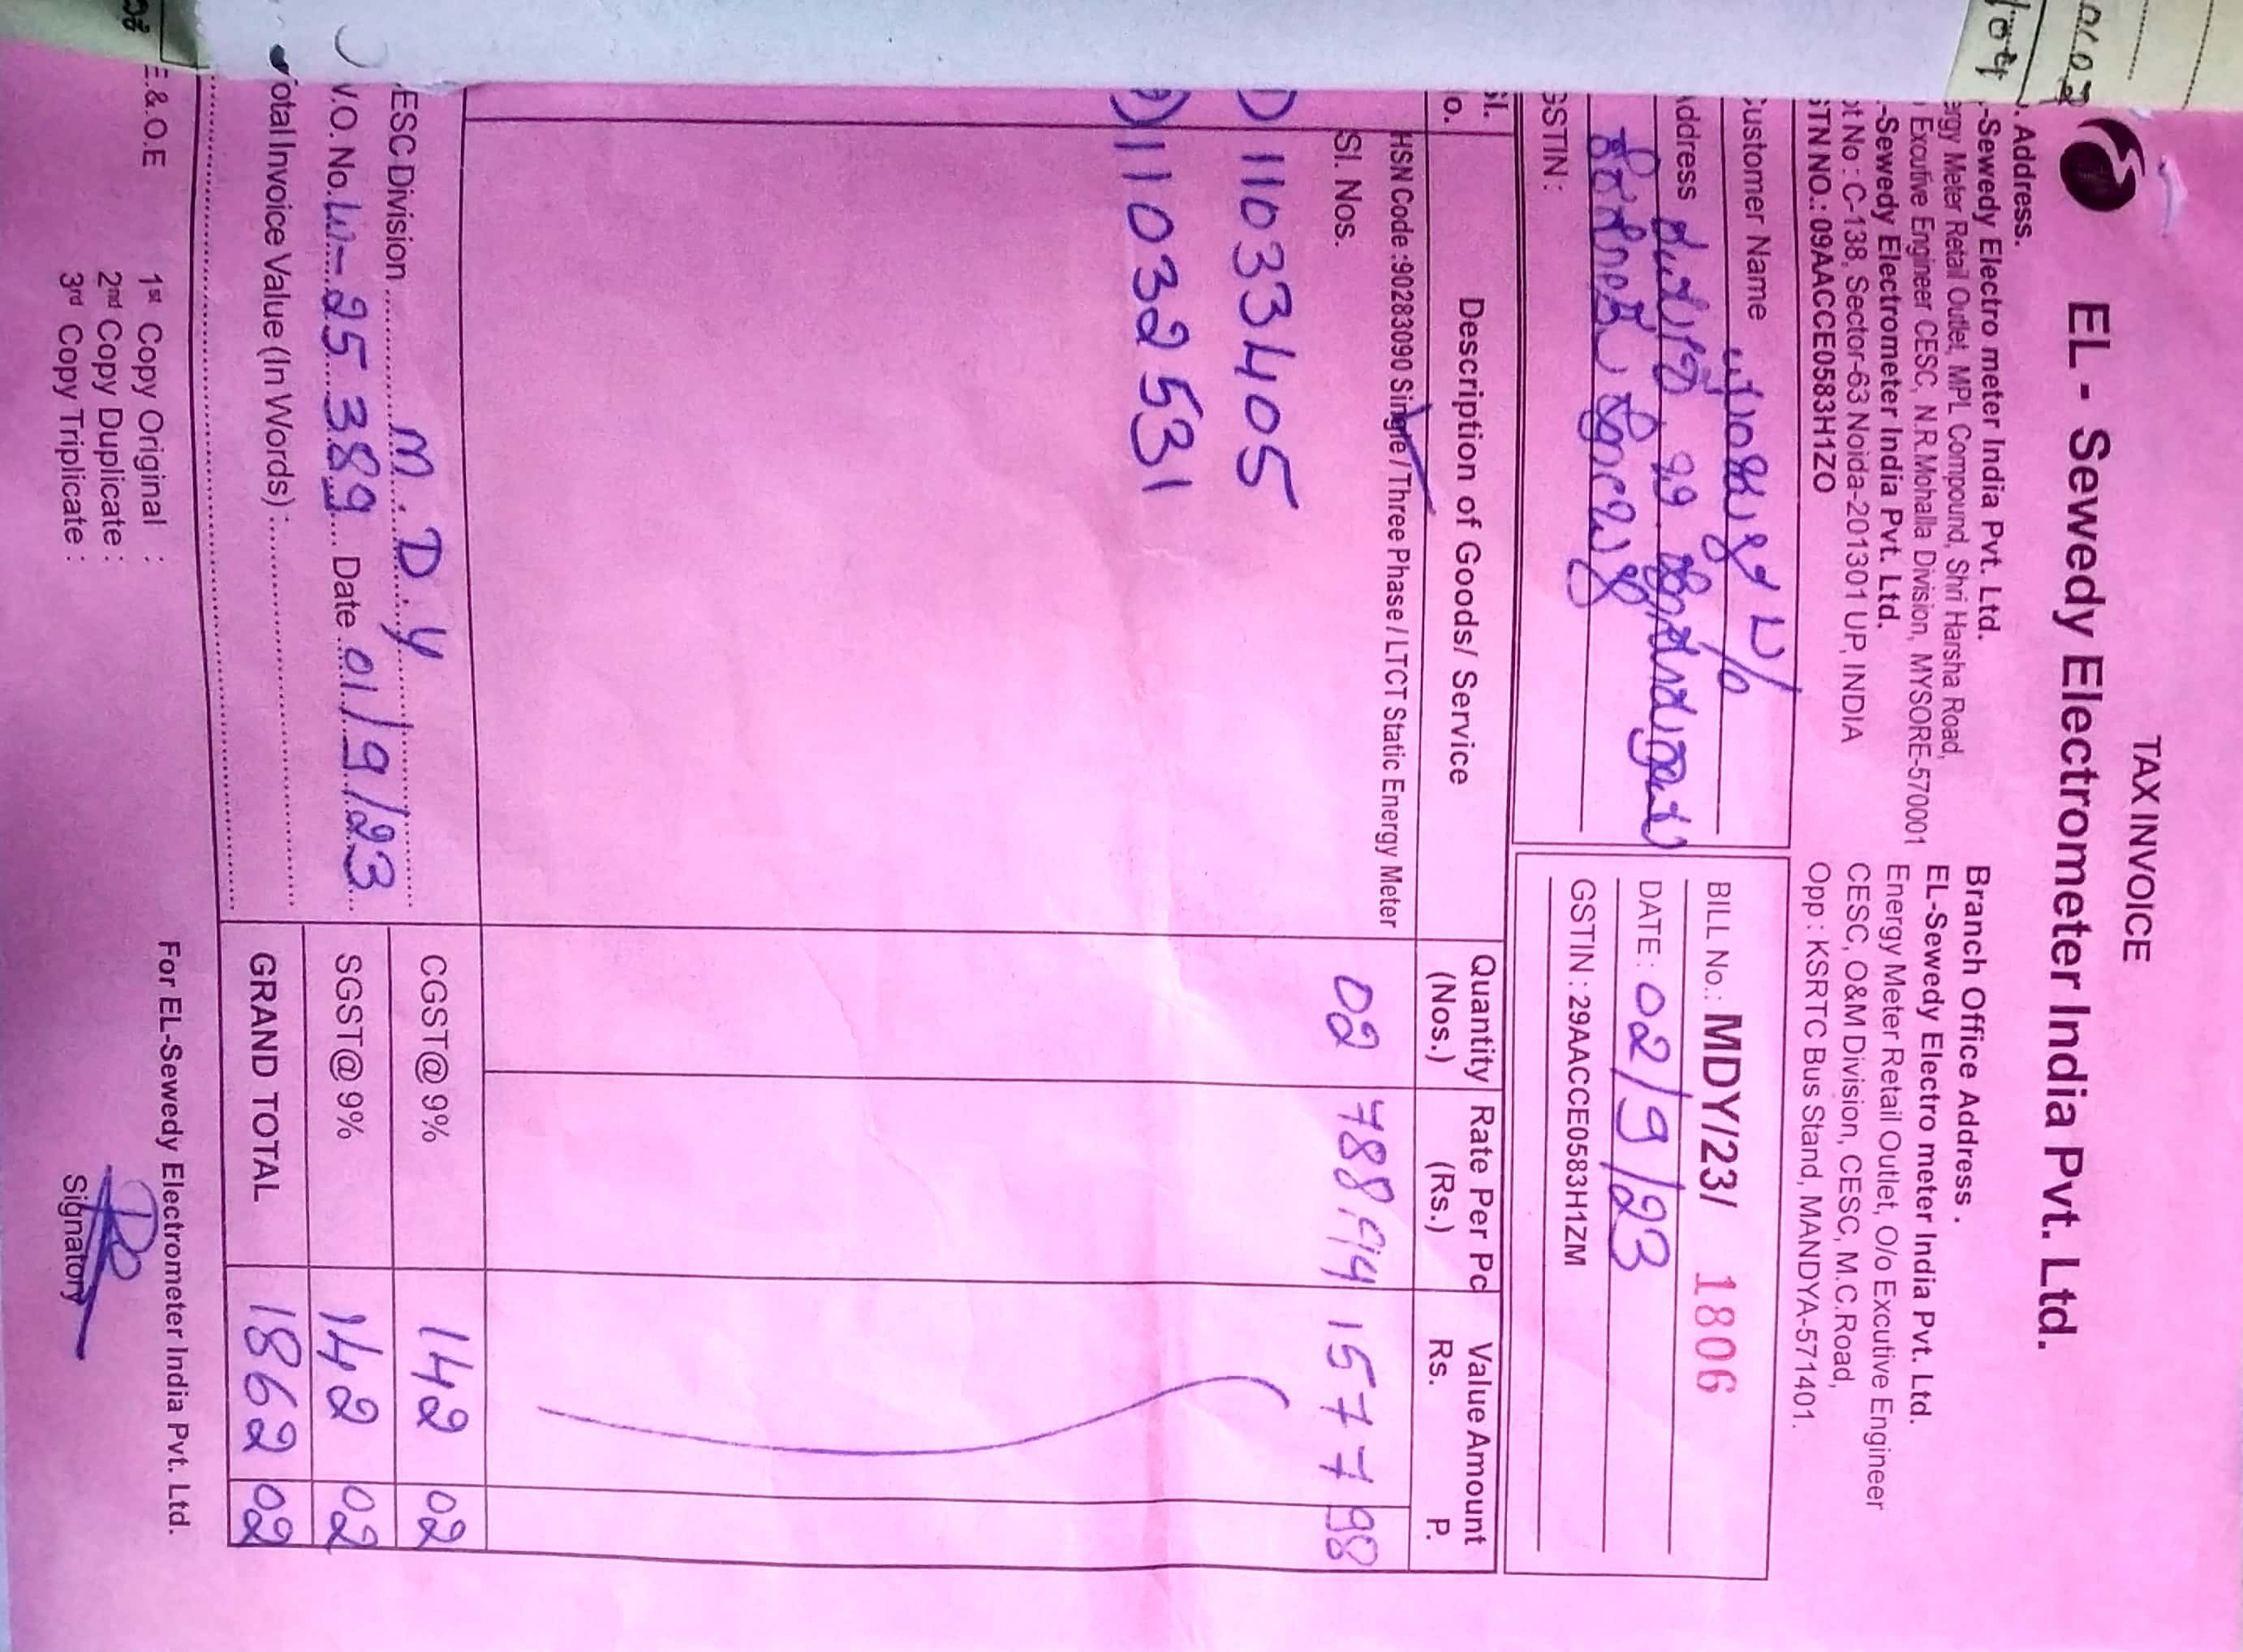 TAX INVOICE
EL - Sewedy Electrometer India Pvt. Ltd.
. Address.
.-Sewedy Electro meter India Pvt. Ltd.
ergy Meter Retail Outlet, MPL Compound, Shri Harsha Road,
Excutive Engineer CESC, N.R.Mohalla Division, MYSORE-570001
.-Sewedy Electrometer India Pvt. Ltd.
ot No : C-138, Sector-63 Noida-201301 UP, INDIA
STN NO.: 09AACCE0583H1ZO
Branch Office Address .
EL-Sewedy Electro meter India Pvt. Ltd.
Energy Meter Retail Outlet, O/o Excutive Engineer
CESC, O&M Division, CESC, M.C.Road,
Opp : KSRTC Bus Stand, MANDYA-571401.
Customer Name
Address
GSTIN :
BILL No.: MDY/23/ 1806
DATE : 02/9/23
GSTIN : 29AACCE0583H1ZM
Sl. Description of Goods/ Service Quantity Rate Per Pc Value Amount
o. (Nos.) (Rs.) Rs. P.
HSN Code :90283090 Single / Three Phase / LTCT Static Energy Meter
Sl. Nos. 02 788.99 1577 98
1) 11033405
2) 11032531
ESC Division M.D.Y CGST@ 9% 142 02
V.O. No. W-25389 Date 01/9/23 SGST@ 9% 142 02
Total Invoice Value (In Words) : GRAND TOTAL 1862 02
E.&.O.E
1st Copy Original :
2nd Copy Duplicate :
3rd Copy Triplicate :
For EL-Sewedy Electrometer India Pvt. Ltd.
Signatory